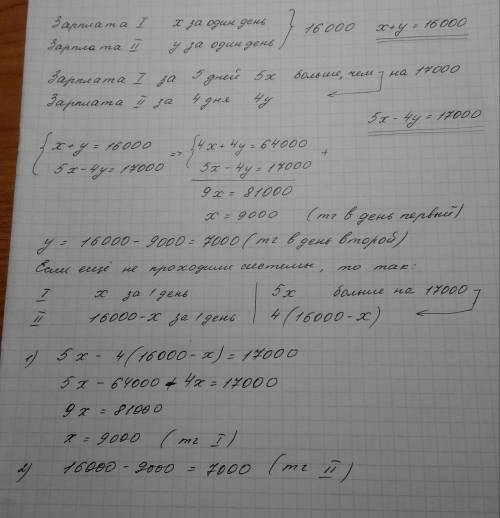 Зарплата I х за один день } 16000 x+y=16000
Зарплата II у за один день
Зарплата I за 5 дней 5x больше, чем на 17000
Зарплата II за 4 дня 4y
5x-4y=17000
{ x+y=16000 => { 4x+4y=64000 +
5x-4y=17000 5x-4y=17000
9x=81000
x=9000 (тг в день первый)
y = 16000-9000=7000 (тг в день второй)
Если ещё не проходили системы, то так:
I x за 1 день | 5x больше на 17000
II 16000-x за 1 день | 4(16000-x)
1) 5x - 4(16000-x)=17000
5x-64000+4x=17000
9x=81000
x=9000 (тг I)
2) 16000-9000=7000 (тг II)